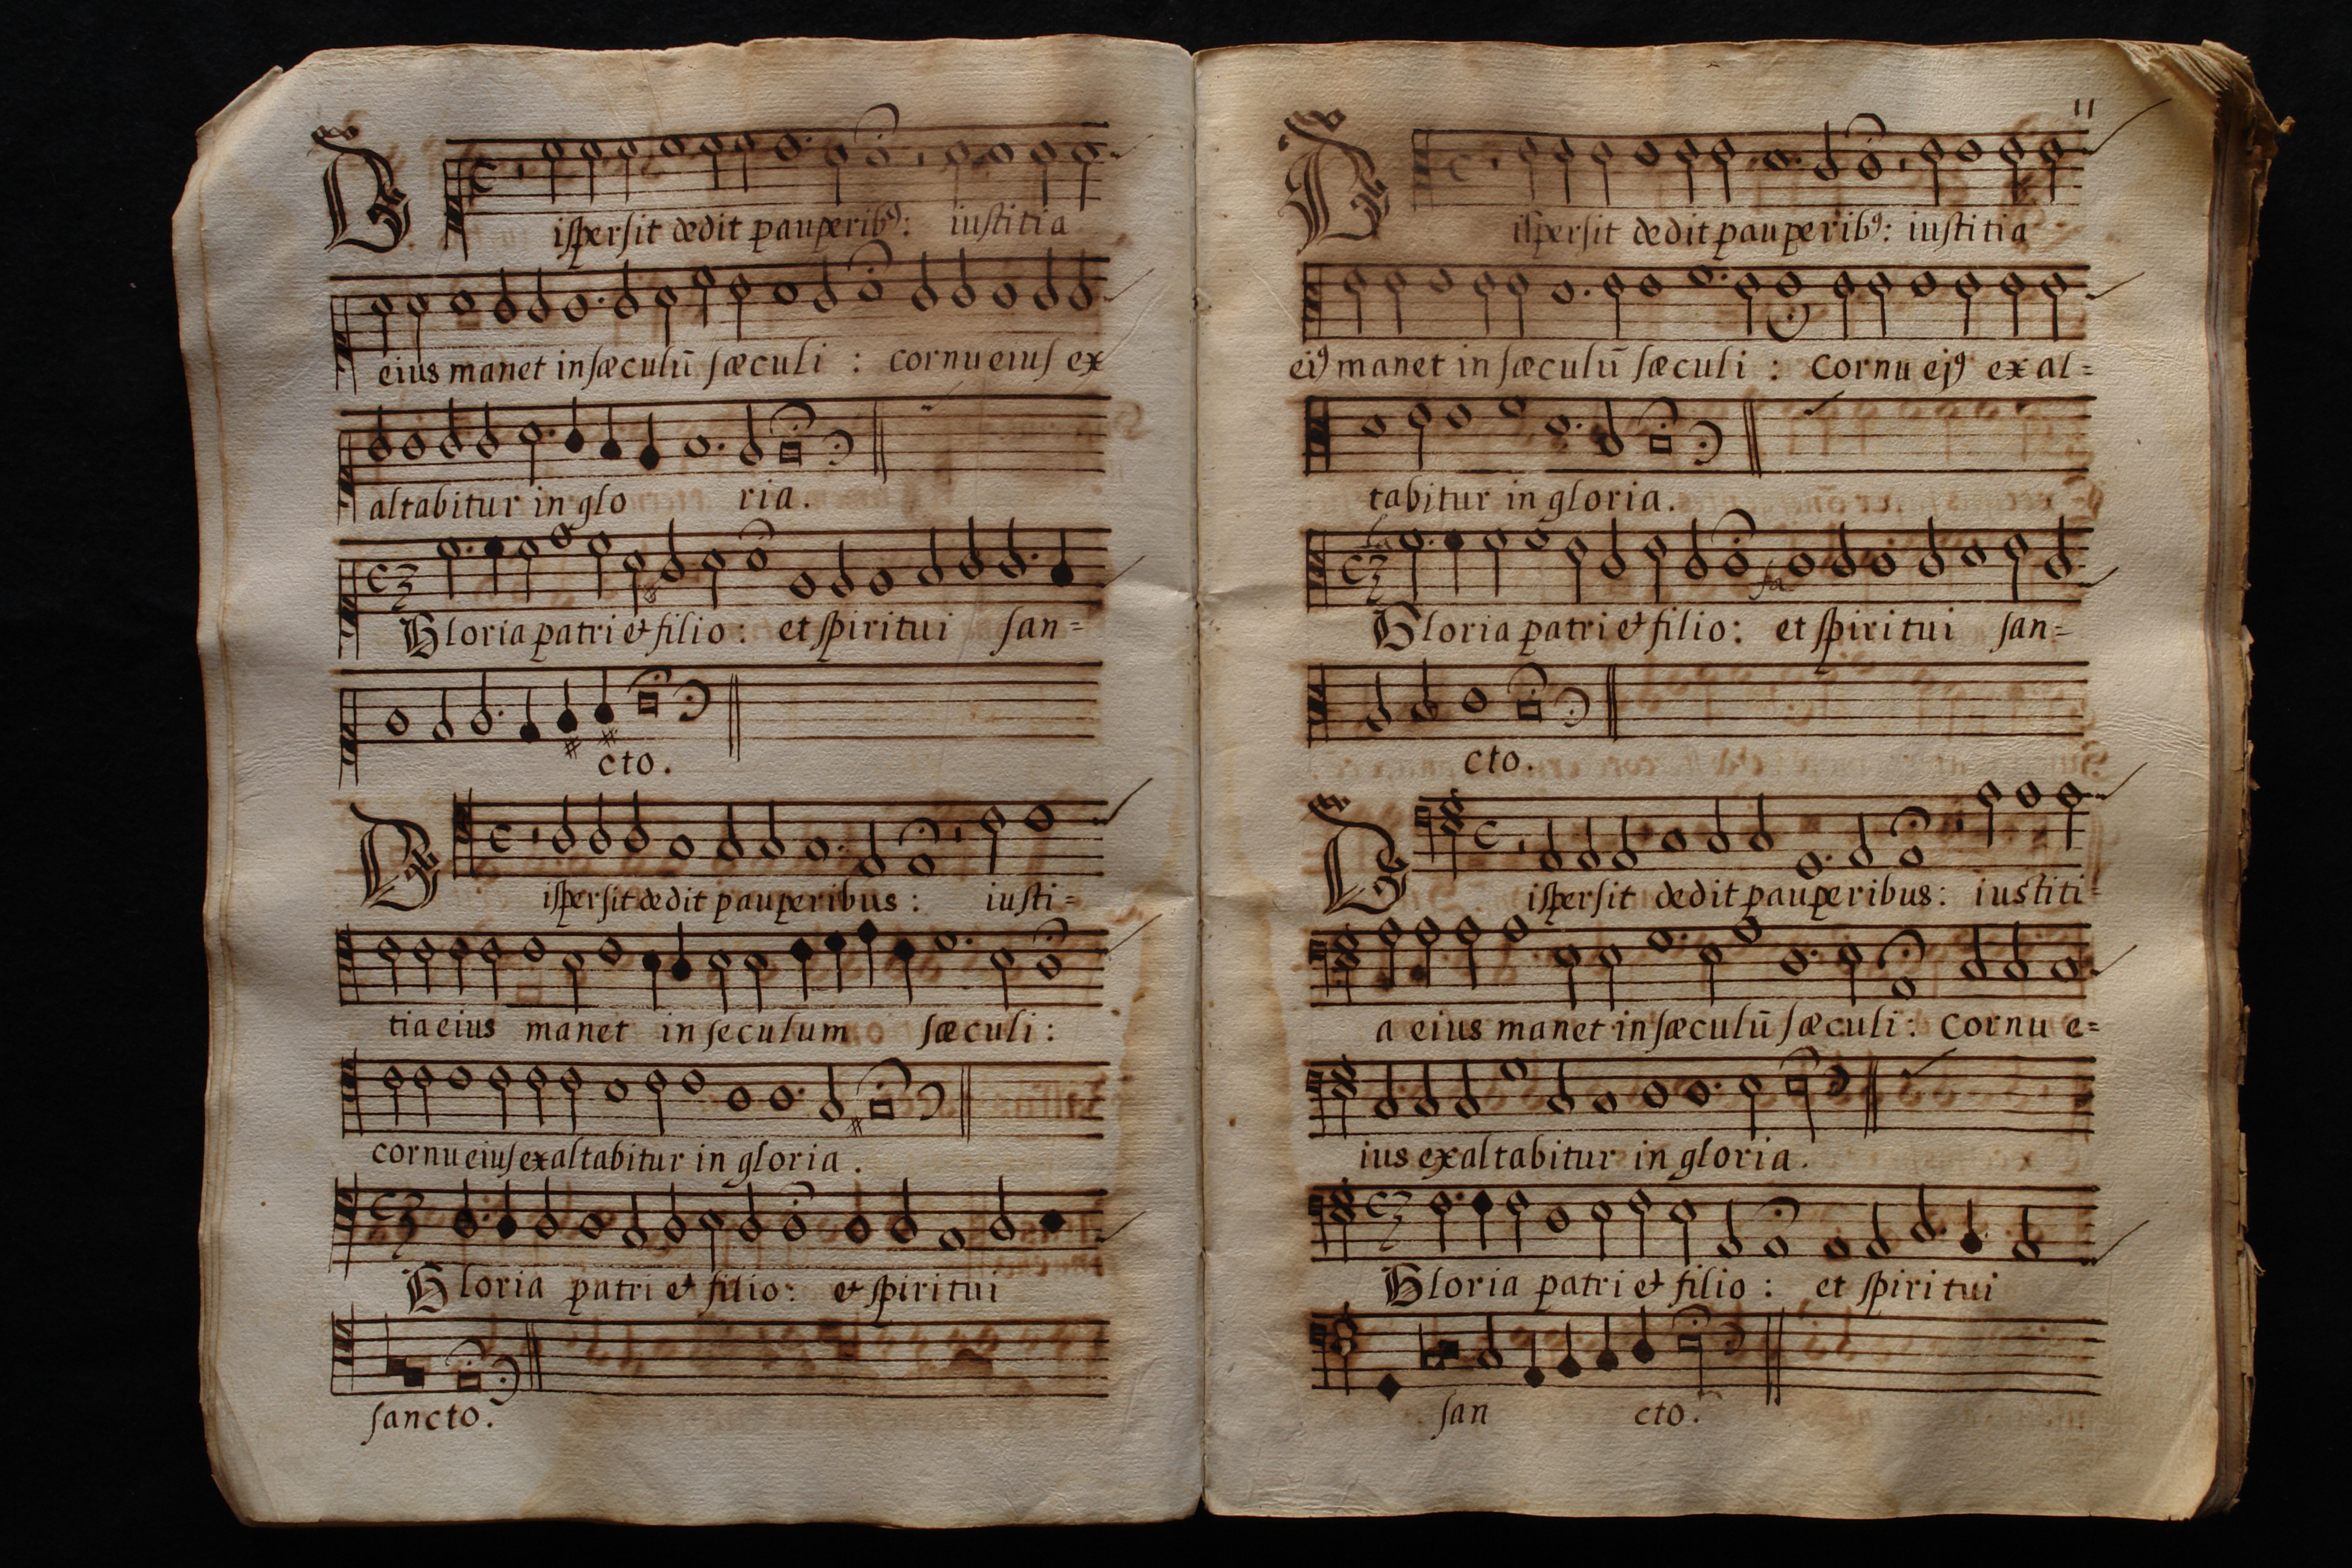 Dispersit dedit pauperibꝰ: iustitia
eius manet in sæculū sæculi : cornu eius ex
altabitur in glo ria.
Gloria patri & filio: et spiritui san=
cto.
Dispersit dedit pauperibus : iusti=
tia eius manet in seculum sæculi:
cornu eius exaltabitur in gloria.
Gloria patri & filio: & spiritui
sancto.
11
Dispersit dedit pauperibꝰ: iustitia
eiꝰ manet in sæculū sæculi : cornu ejꝰ exal=
tabitur in gloria.
fa
Gloria patri & filio: et spiritui san=
cto.
Dispersit dedit pauperibus: iustiti=
a eius manet in sæculū sæculi: cornu e=
ius exaltabitur in gloria.
Gloria patri & filio : et spiritui
san cto.